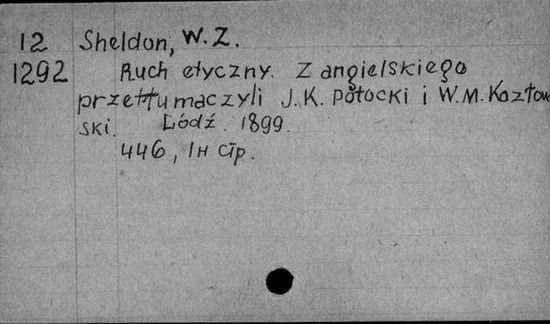 12 Sheldon, W. Z.
1292 Ruch etyczny. Z angielskiego
przettumaczyli J. K. Potocki i W. M. Kozłow
ski. Łódź. 1899.
446, IH стр.